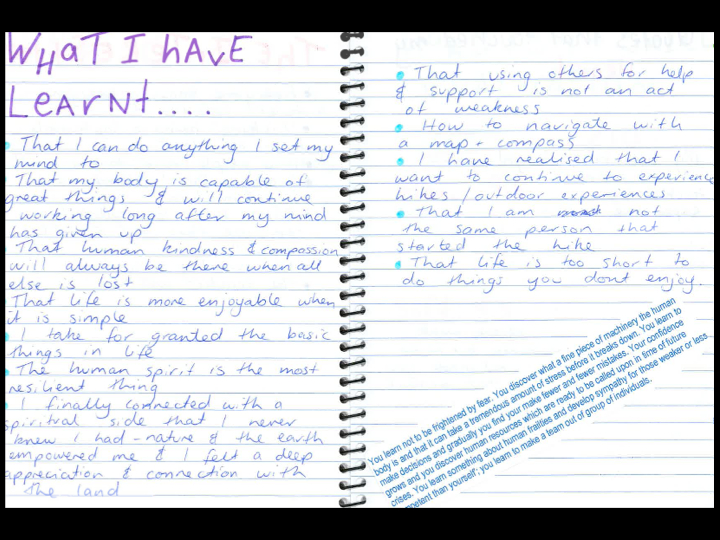 WHaT I hAvE
LeARNt....
That I can do anything I set my
mind to
That my body is capable of
great things & will continue
working long after my mind
has given up
That human kindness & compassion
will always be there when all
else is lost
That life is more enjoyable when
it is simple
I take for granted the basic
things in life
The human spirit is the most
resilient thing
I finally connected with a
spiritual side that I never
knew I had - nature & the earth
empowered me & I felt a deep
appreciation & connection with
the land
That using others for help
& support is not an act
of weakness
How to navigate with
a map + compass
I have realised that I
want to continue to experience
hikes / outdoor experiences
That I am not
the same person that
started the hike
That life is too short to
do things you dont enjoy.
You learn not to be frightened by fear. You discover what a fine piece of machinery the human
body is and that it can take a tremendous amount of stress before it breaks down. You learn to
make decisions and gradually you find your make fewer and fewer mistakes. Your confidence
grows and you discover human resources which are ready to be called upon in time of future
crises. You learn something about human frailties and develop sympathy for those weaker or less
petent than yourself; you learn to make a team out of group of individuals.